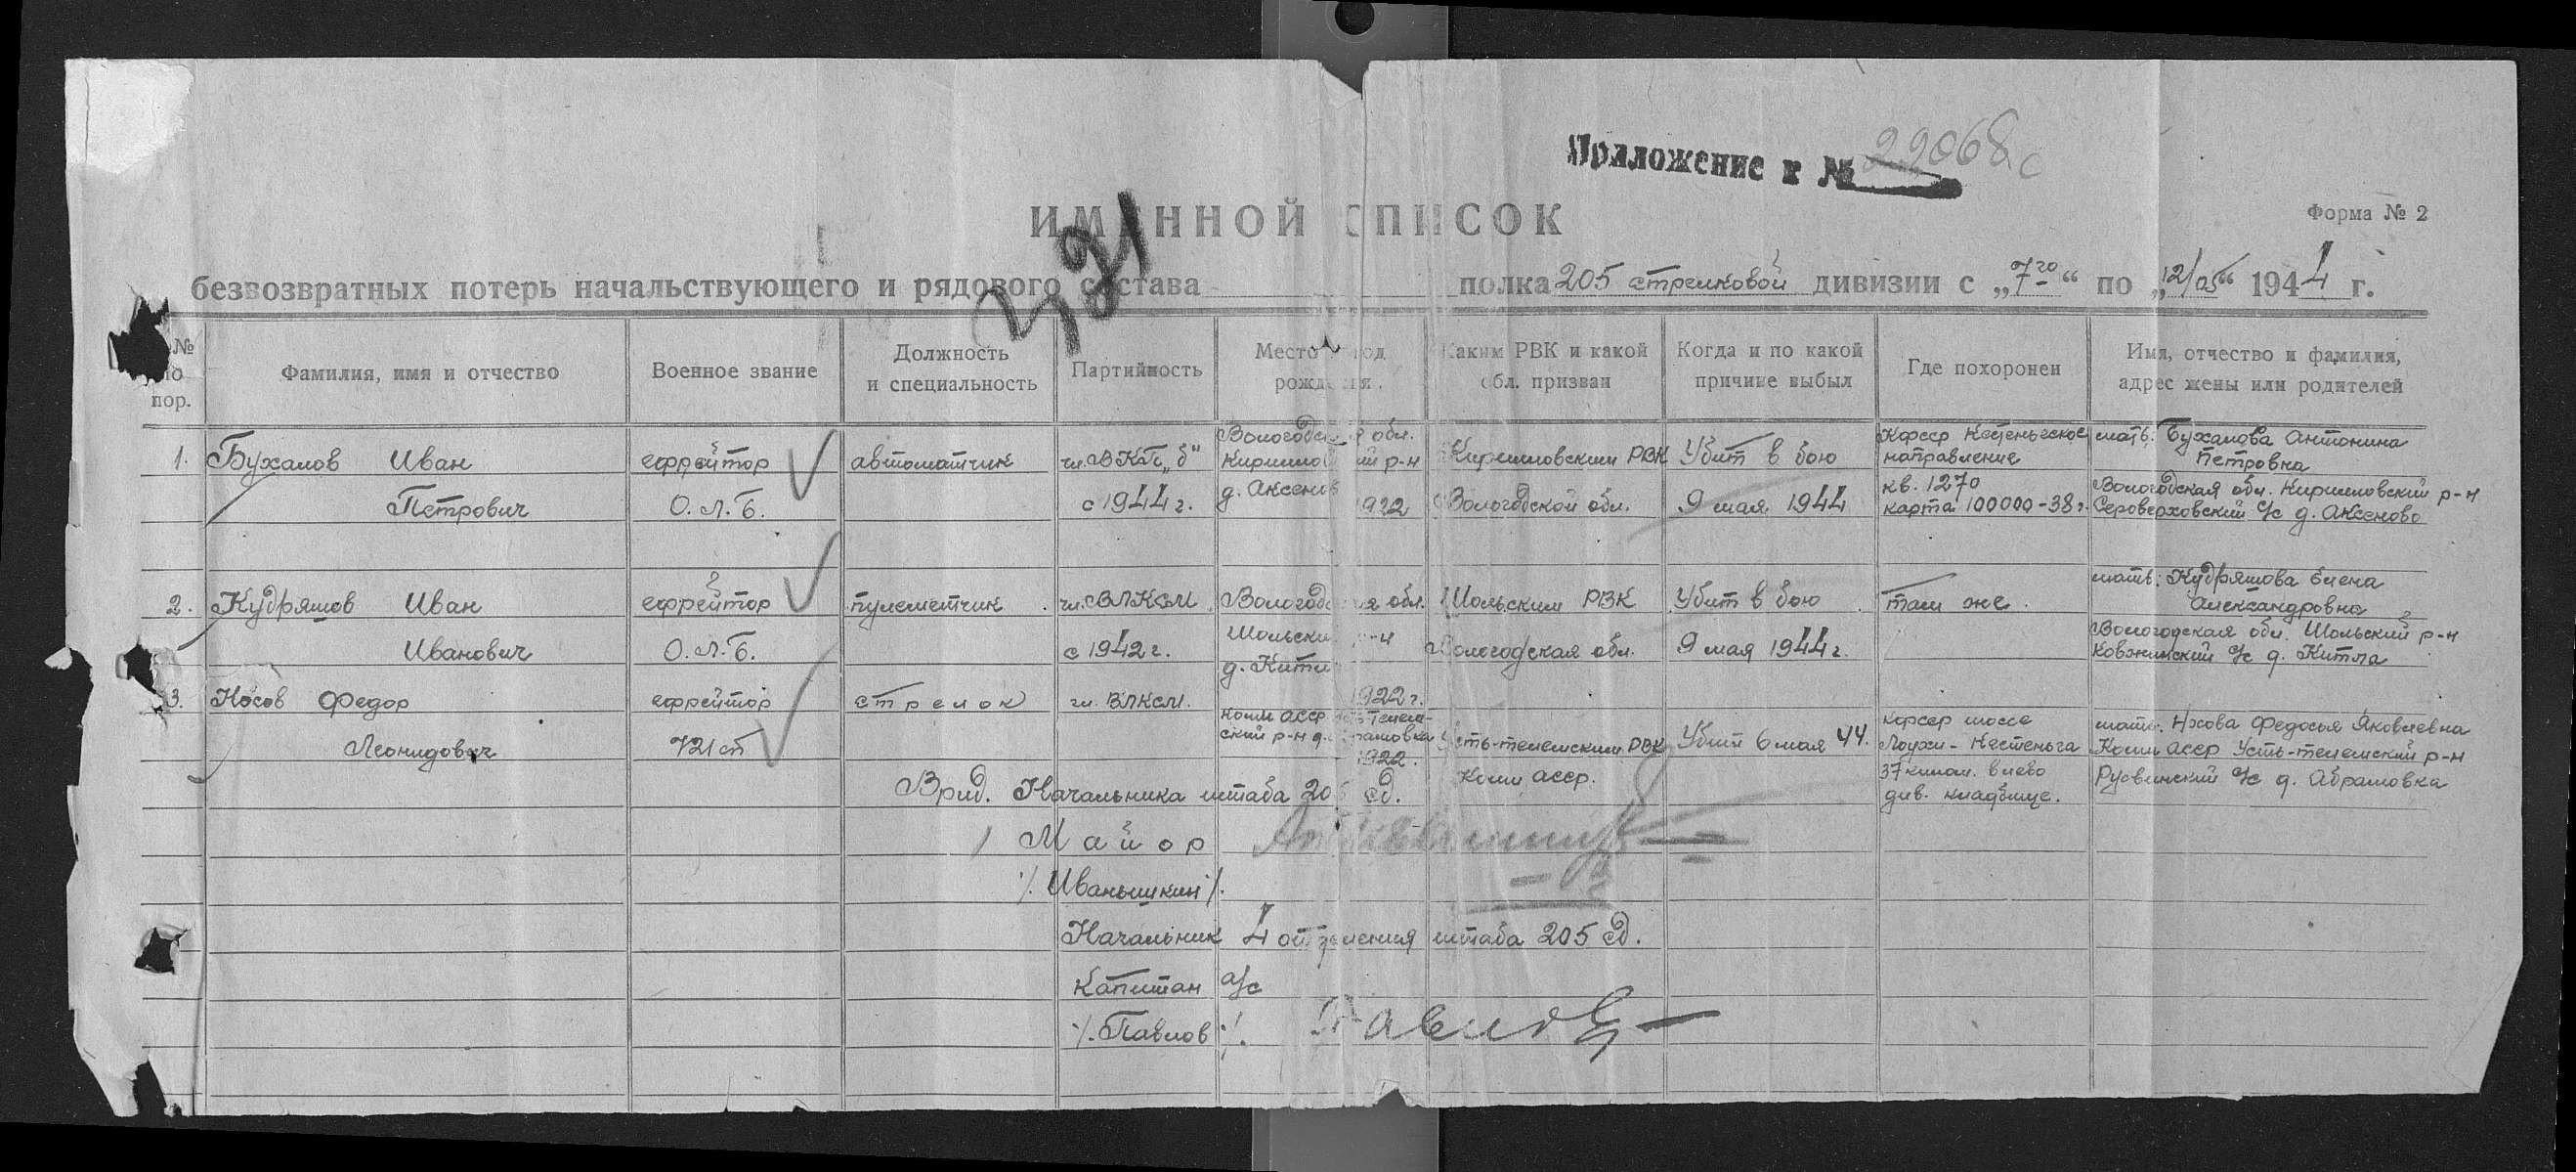 Приложение к № 22068с
ИМЕННОЙ СПИСОК
Форма № 2
безвозвратных потерь начальствующего и рядового состава полка 205 стрелковой дивизии с „7го“ по „12/05“ 1944 г.
№ по пор.
Фамилия, имя и отчество
Военное звание
Должность и специальность
Партийность
Место и год рождения.
Каким РВК и какой обл. призван
Когда и по какой причине выбыл
Где похоронен
Имя, отчество и фамилия, адрес жены или родителей
1. Бухалов Иван
Петрович
ефрейтор
О.Л.Б.
автоматчик
чл. ВКП„б“
с 1944 г.
Вологодская обл.
Кирилловский р-н
д. Аксеново
1922
Кирилловским РВК
Вологодской обл.
Убит в бою
9 мая 1944
Кфсср Кестеньгское
направление
кв. 1270
карта 100000-38 г.
мать: Бухалова Антонина
Петровна
Вологодская обл. Кирилловский р-н
Сероверховский с/с д. Аксеново
2. Кудряшов Иван
Иванович
ефрейтор
О.Л.Б.
пулеметчик
чл. ВЛКСМ
с 1942 г.
Вологодская обл.
Шольский р-н
д. Китла
1922 г.
Шольским РВК
Вологодская обл.
Убит в бою
9 мая 1944 г.
там же.
мать: Кудряшова Елена
Александровна
Вологодская обл. Шольский р-н
Ковжинский с/с д. Китла
3. Носов Федор
Леонидович
ефрейтор
721 сп
стрелок
чл. ВЛКСМ.
Коми асср
ский р-н д. Абрамовка
1922.
Усть-телемским РВК
Коми асср.
Убит 6 мая 44.
кфсср шоссе
Лоухи - Кестеньга
37 килом. влево
див. кладбище.
мать: Носова Федосья Яковлевна
Коми асср Усть-телемский р-н
д. Абрамовка
Врид. Начальника штаба 205 сд.
Майор
/. Иванышкин /.
Начальник 4 отделения штаба 205 сд.
Капитан а/с
/. Павлов /.